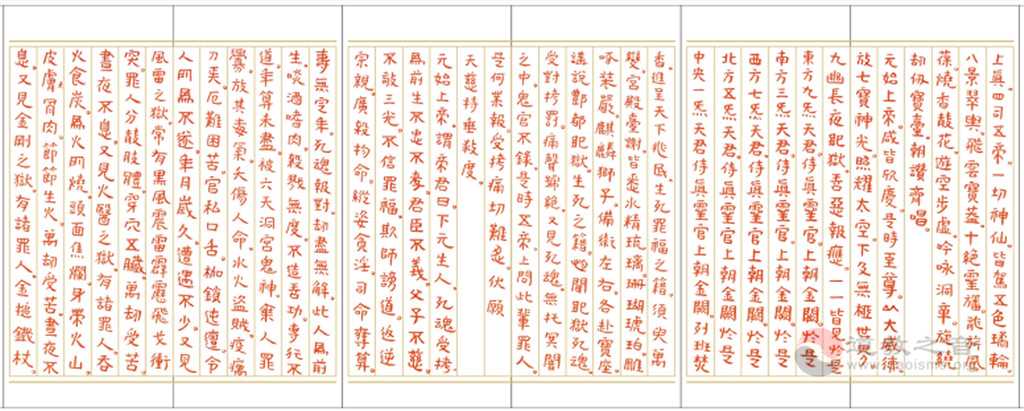 上眞四司五帝一切神仙皆駕五色璚輪
八景翠輿飛雲寶盖十絕靈旛龍旂風
葆燒香散花遊空步虛吟咏洞章旋繞
劫仞寶臺朝讚齊唱
元始上帝咸皆欣慶是時至尊以大威德
放七寶神光照耀太空下及無極世界久
九幽長夜地獄善惡報應一一皆見扵是
東方九炁天君侍眞靈官上朝金闕扵是
南方三炁天君侍眞靈官上朝金闕扵是
西方七炁天君侍眞靈官上朝金闕扵是
北方五炁天君侍眞靈官上朝金闕扵是
中央一炁天君侍眞靈官上朝金闕列班焚
香進呈天下兆民生死罪福之籍須臾萬
變宮殿臺謝皆悉水精琉璃珊瑚琥珀雕
啄裝嚴麒麟獅子備衛左右各赴寶座
遙說酆都地獄生死之籍廻聞地獄死魂
受對拷罸痛聲號絕又見死魂無托冥関
之中鬼官不錄是時五帝上問此輩罪人
是何業報受拷痛切難忍伏願
天慈特垂救度
元始上帝謂帝君曰下元生人死魂受拷
爲前生不忠不孝君臣不義父子不慈
不敬三光不信罪福欺師謗道返逆
宗親屠殺物命縱姿貪淫司命奪算
壽無定年死魂報對劫盡無解此人爲前
生啖酒嗜肉殺戮無度不造善功專行不
道年算未盡被六天洞宮鬼神秉人罪
釁放其毒氣夭傷人命水火盜賊疫癘
刀兵厄難困苦官私口舌枷鎖迍邅令
人所爲不遂年月歲久遭遇不少又見
風雷之獄常有黑風震雷霹靂飛戈衝
突罪人分散肢體穿穴五臟萬劫受苦
晝夜不息又見火翳之獄有諸罪人吞
火食炭爲火所燒頭面焦爛身帶火山
皮膚骨肉節節生火萬劫受苦晝夜不
息又見金剛之獄有諸罪人金搥鐵杖
道教之音